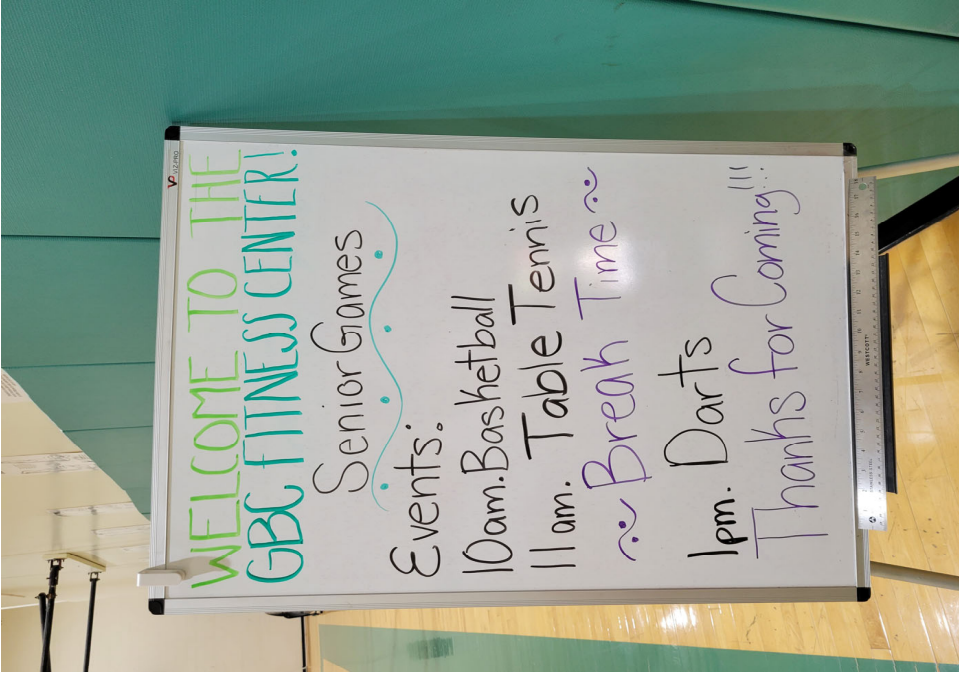 VIZ-PRO
WELCOME TO THE
GBC FITNESS CENTER!
Senior Games
Events:
10am. Basketball
11am. Table Tennis
~ Break Time ~
1pm. Darts
Thanks for Coming!!!
WESTCOTT